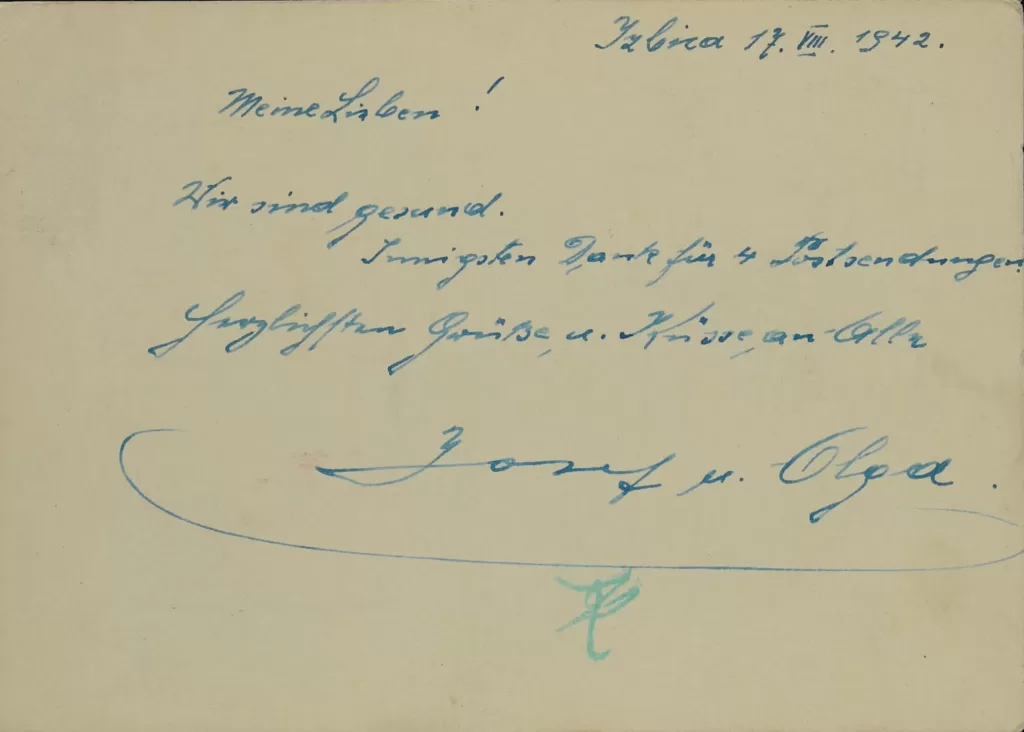 Izbica 17. VIII. 1942.
Meine Lieben !
Wir sind gesund.
Innigsten Dank für 4 Postsendungen
Herzlichsten Grüße, u. Küsse, an Alle
Josef u. Olga.